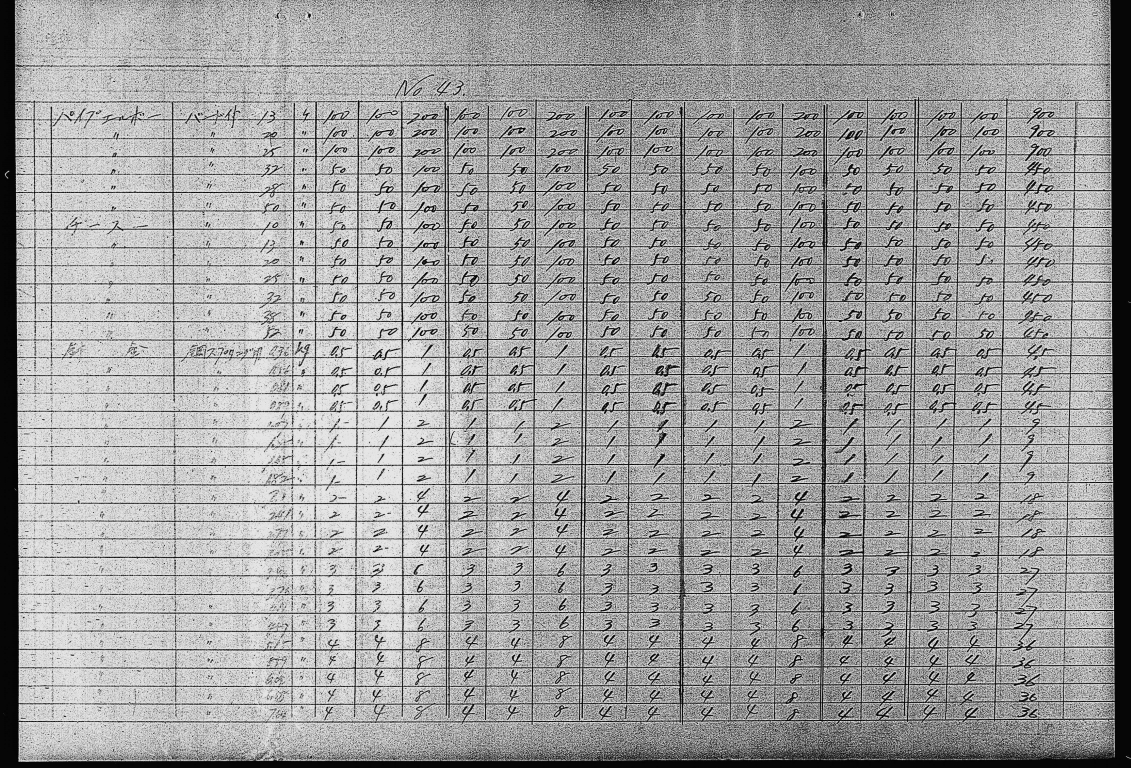 No 43.
パイプエルボー バンド付 13 〃 100 100 200 100 100 200 100 100 100 100 200 100 100 100 100 900
〃 〃 20 〃 100 100 200 100 100 200 100 100 100 100 200 100 100 100 100 900
〃 〃 25 〃 100 100 200 100 100 200 100 100 100 100 200 100 100 100 100 900
〃 〃 32 〃 50 50 100 50 50 100 50 50 50 50 100 50 50 50 50 450
〃 〃 28 〃 50 50 100 50 50 100 50 50 50 50 100 50 50 50 50 450
〃 〃 50 〃 50 50 100 50 50 100 50 50 50 50 100 50 50 50 50 450
チース 〃 10 〃 50 50 100 50 50 100 50 50 50 50 100 50 50 50 50 450
〃 〃 13 〃 50 50 100 50 50 100 50 50 50 50 100 50 50 50 50 450
〃 〃 20 〃 50 50 100 50 50 100 50 50 50 50 100 50 50 50 50 450
〃 〃 25 〃 50 50 100 50 50 100 50 50 50 50 100 50 50 50 50 450
〃 〃 32 〃 50 50 100 50 50 100 50 50 50 50 100 50 50 50 50 450
〃 〃 38 〃 50 50 100 50 50 100 50 50 50 50 100 50 50 50 50 450
〃 〃 52 〃 50 50 100 50 50 100 50 50 50 50 100 50 50 50 50 450
鋼スプリング用 kg 0.5 0.5 1 0.5 0.5 1 0.5 0.5 0.5 0.5 1 0.5 0.5 0.5 0.5 4.5
〃 〃 〃 0.5 0.5 1 0.5 0.5 1 0.5 0.5 0.5 0.5 1 0.5 0.5 0.5 0.5 4.5
〃 〃 〃 0.5 0.5 1 0.5 0.5 1 0.5 0.5 0.5 0.5 1 0.5 0.5 0.5 0.5 4.5
〃 〃 〃 0.5 0.5 1 0.5 0.5 1 0.5 0.5 0.5 0.5 1 0.5 0.5 0.5 0.5 4.5
〃 〃 〃 1 1 2 1 1 2 1 1 1 1 2 1 1 1 1 9
〃 〃 〃 1 1 2 1 1 2 1 1 1 1 2 1 1 1 1 9
〃 〃 〃 1 1 2 1 1 2 1 1 1 1 2 1 1 1 1 9
〃 〃 〃 1 1 2 1 1 2 1 1 1 1 2 1 1 1 1 9
〃 〃 〃 2 2 4 2 2 4 2 2 2 2 4 2 2 2 2 18
〃 〃 〃 2 2 4 2 2 4 2 2 2 2 4 2 2 2 2 18
〃 〃 〃 2 2 4 2 2 4 2 2 2 2 4 2 2 2 2 18
〃 〃 〃 2 2 4 2 2 4 2 2 2 2 4 2 2 2 2 18
〃 〃 〃 3 3 6 3 3 6 3 3 3 3 6 3 3 3 3 27
〃 〃 〃 3 3 6 3 3 6 3 3 3 3 6 3 3 3 3 27
〃 〃 〃 3 3 6 3 3 6 3 3 3 3 6 3 3 3 3 27
〃 〃 〃 3 3 6 3 3 6 3 3 3 3 6 3 3 3 3 27
〃 〃 〃 4 4 8 4 4 8 4 4 4 4 8 4 4 4 4 36
〃 〃 〃 4 4 8 4 4 8 4 4 4 4 8 4 4 4 4 36
〃 〃 〃 4 4 8 4 4 8 4 4 4 4 8 4 4 4 4 36
〃 〃 〃 4 4 8 4 4 8 4 4 4 4 8 4 4 4 4 36
〃 〃 〃 4 4 8 4 4 8 4 4 4 4 8 4 4 4 4 36